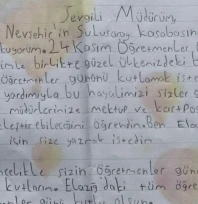 Sevgili Müdürüm,
Nevşehir'in Sulusaray kasabasın
kuyorum. 24 Kasım Öğretmenler
imle birlikte güzel ülkemizdeki b
öğretmenler gününü kutlamak iste
yardımıyla bu hayalimizi sizler
müdürlerinize mektup ve kartpos
leştirebileceğimi öğrendim. Ben, Ela
için size yazmak istedim
celikle sizin öğretmenler gün
kutlarım. Elazığ'daki tüm öğre
nler günü kutlu olsun.